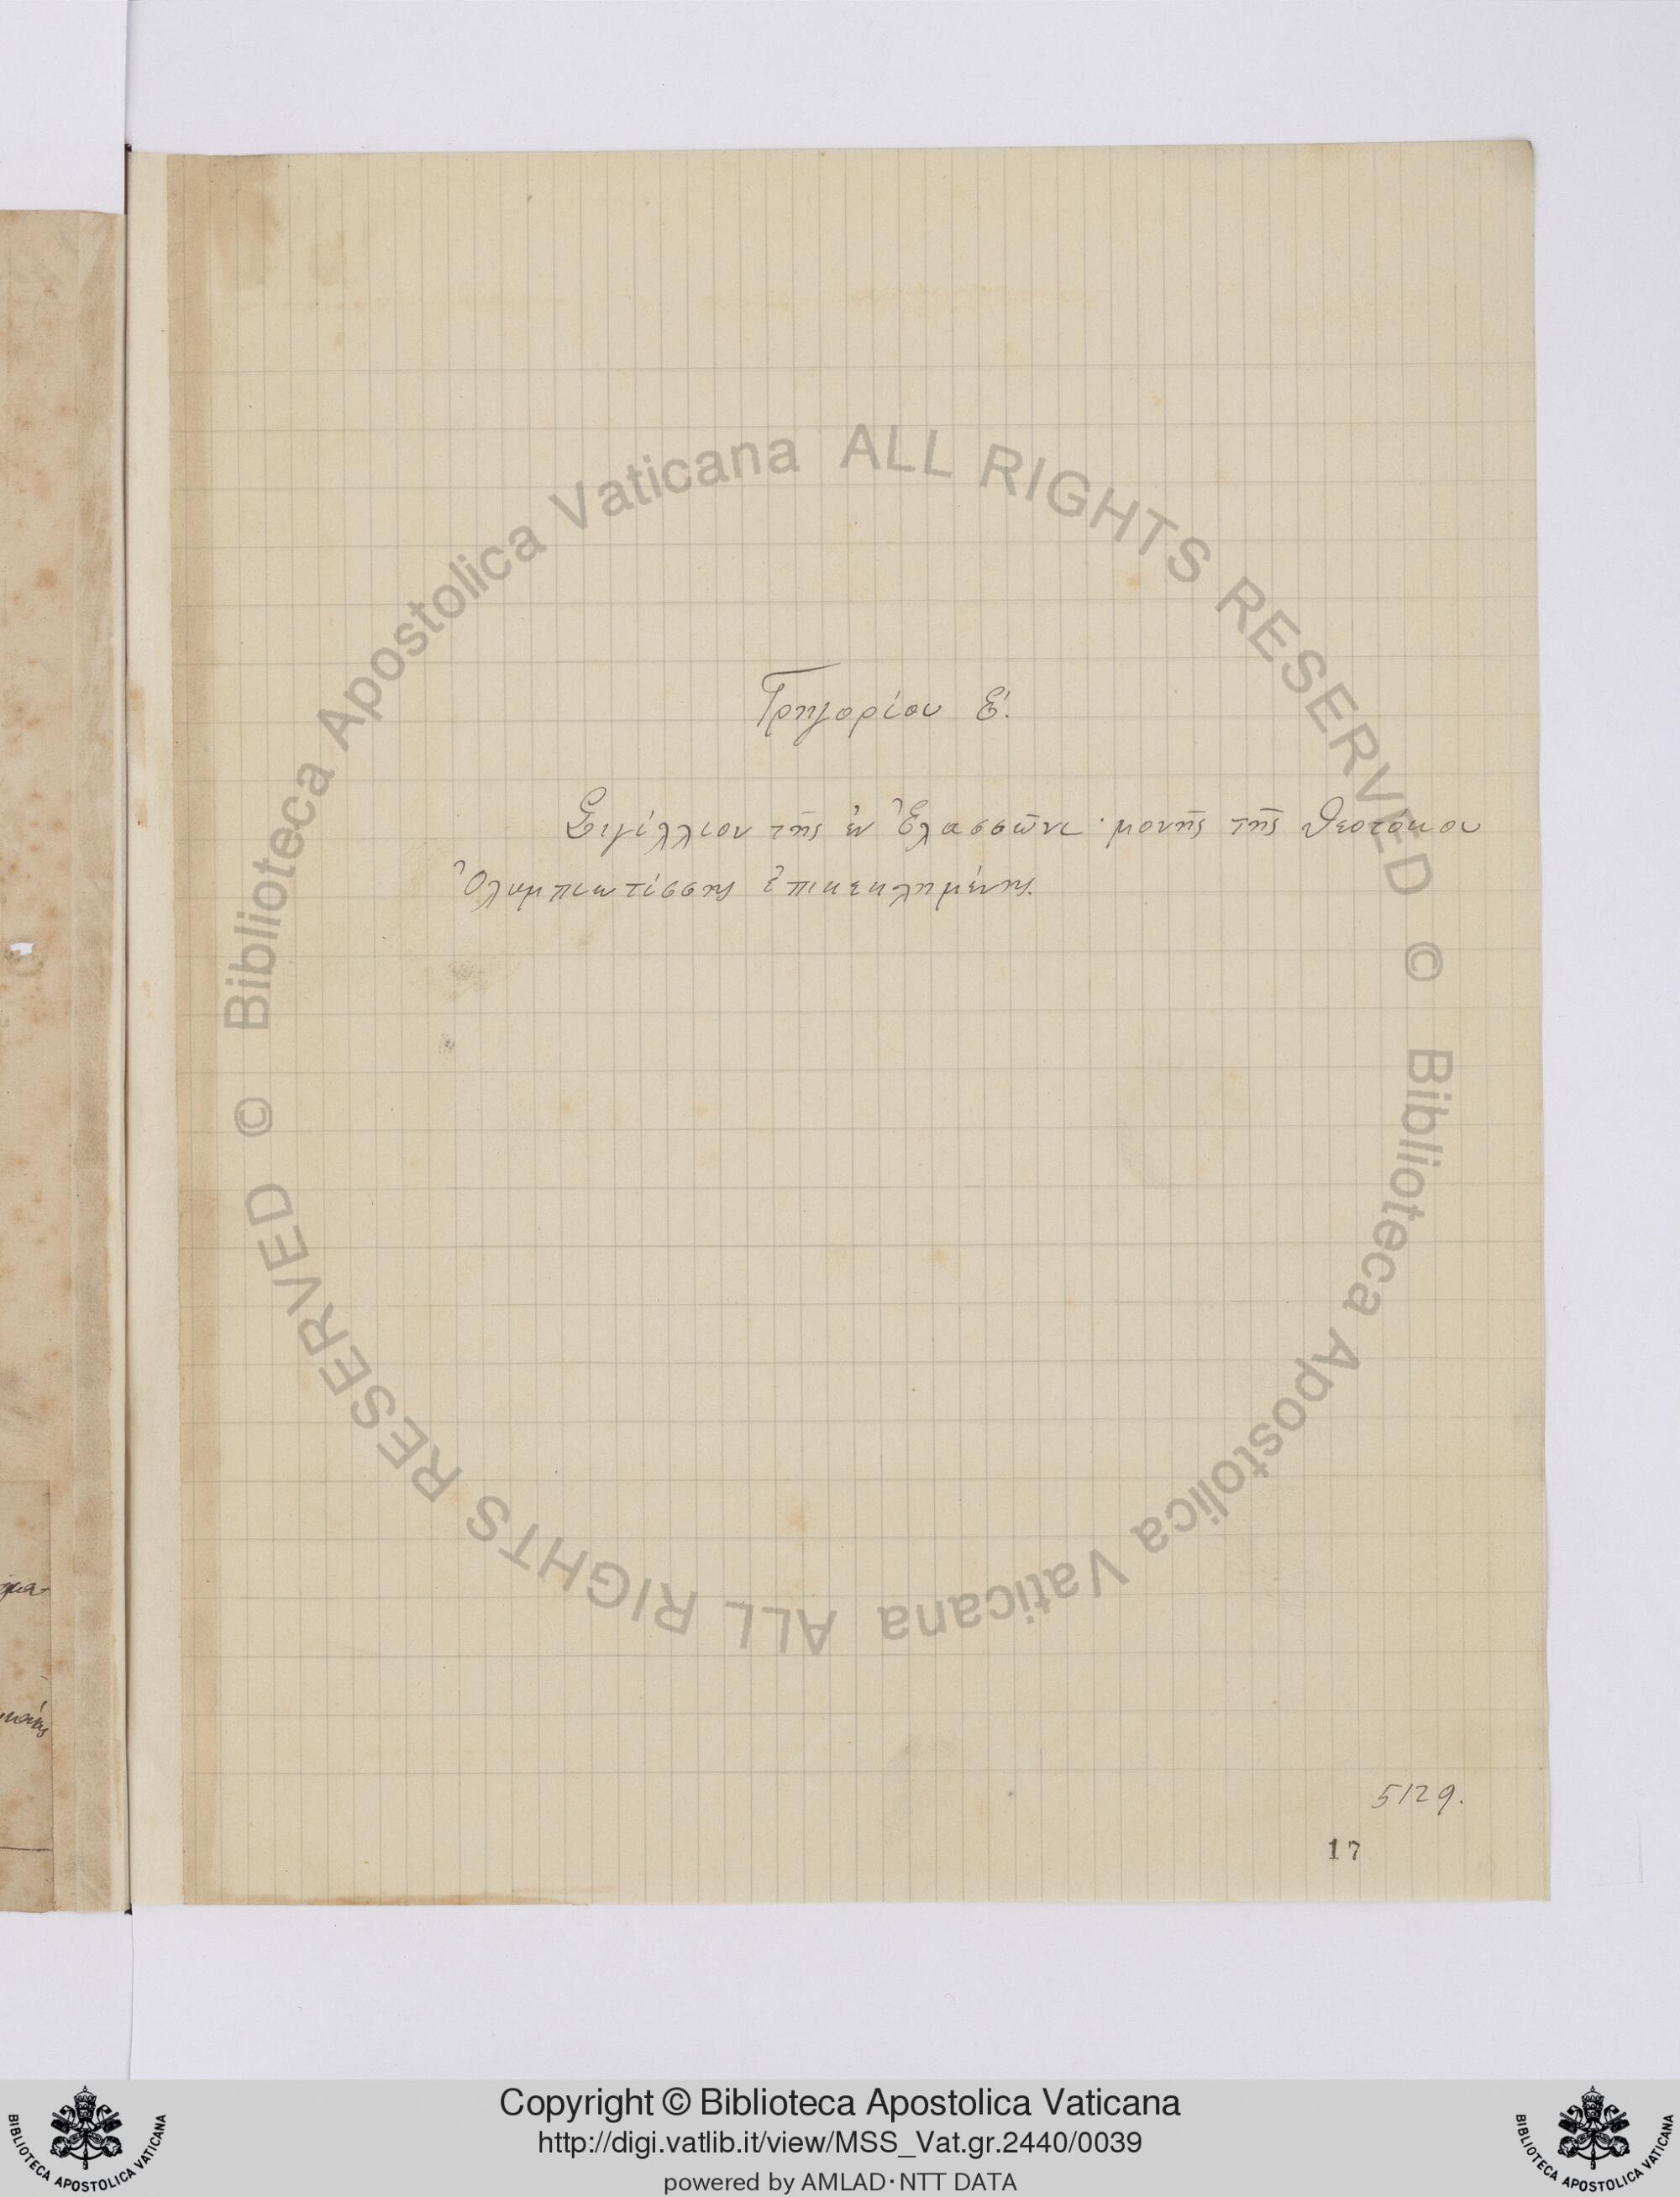 Γρηγορίου Ε΄.
Σιγίλλιον τῆς ἐν Ἐλασσῶνι μονῆς τῆς Θεοτόκου
Ὀλυμπιωτίσσης ἐπικεκλημένης.
5129.
17
© Biblioteca Apostolica Vaticana ALL RIGHTS RESERVED
© Biblioteca Apostolica Vaticana ALL RIGHTS RESERVED
Copyright © Biblioteca Apostolica Vaticana
http://digi.vatlib.it/view/MSS_Vat.gr.2440/0039
powered by AMLAD·NTT DATA
BIBLIOTECA APOSTOLICA VATICANA
BIBLIOTECA APOSTOLICA VATICANA